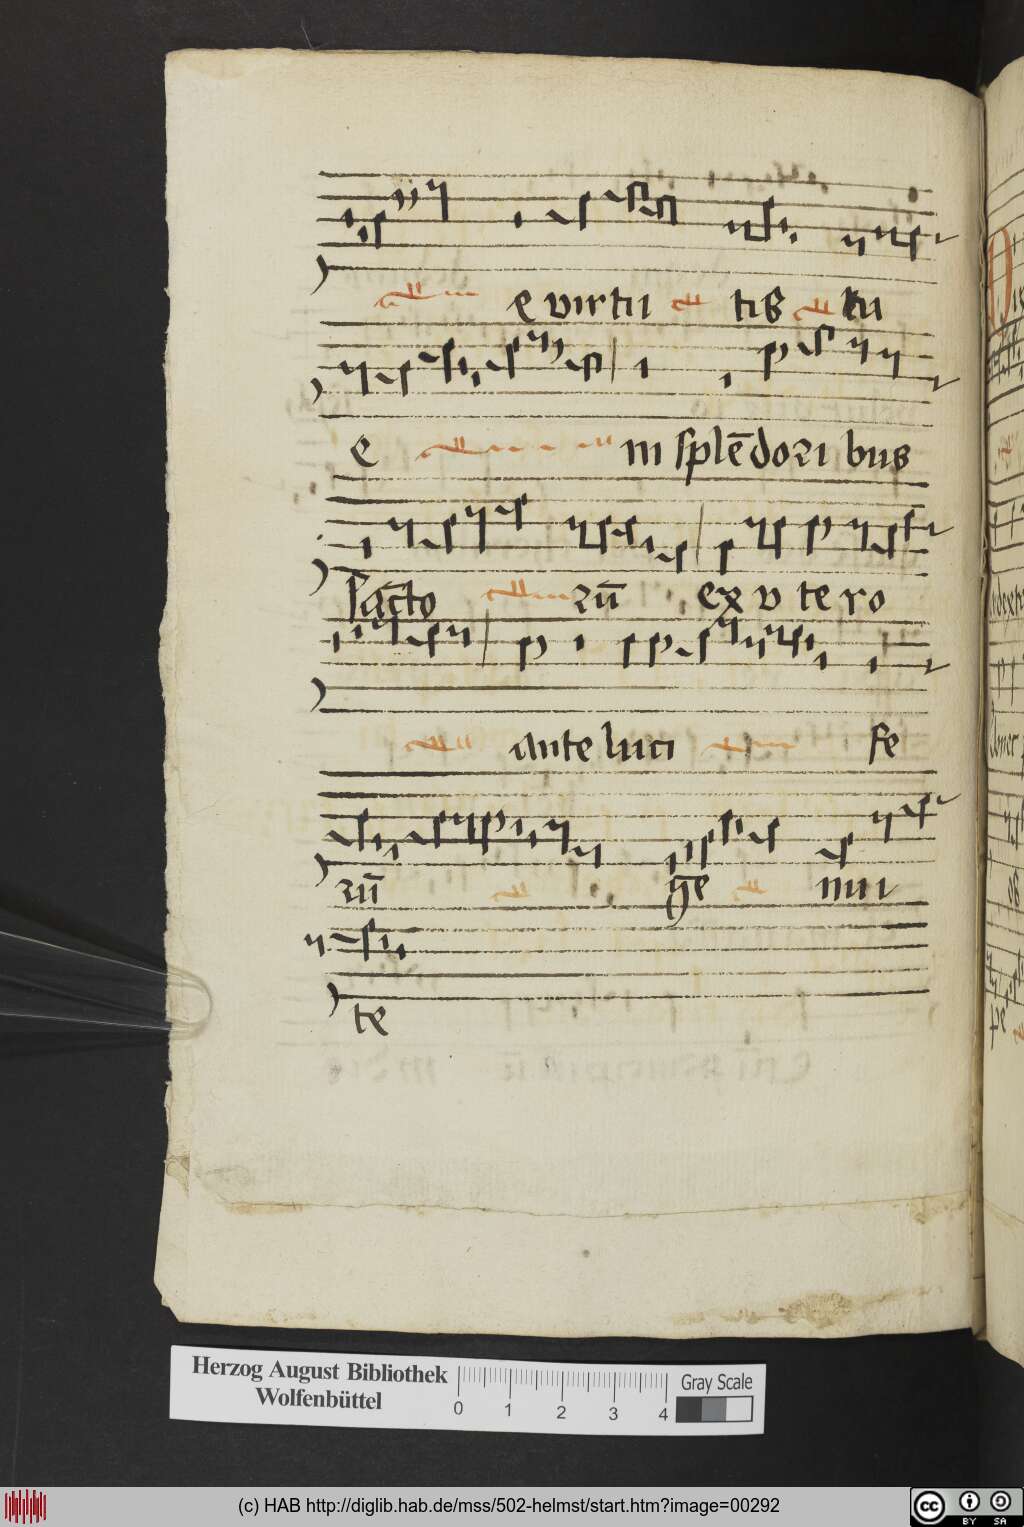 e virtu tis tu
e in splēdori bus
sācto rū ex v te ro
ante luci fe
rū ge nui
te
Herzog August Bibliothek
Wolfenbüttel
0 1 2 3 4
Gray Scale
(c) HAB http://diglib.hab.de/mss/502-helmst/start.htm?image=00292
cc BY SA